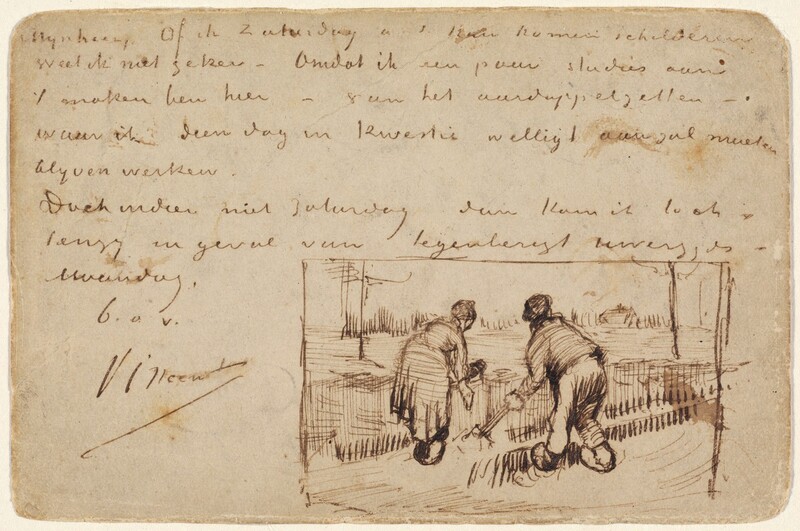 Mynheer, Of ik Zaturdag a s kan komen schilderen
weet ik niet zeker – Omdat ik een paar studies aan
't maken ben hier – van het aardappelzetten –
waar ik dien dag in kwestie welligt aan zal moeten
blyven werken.
Doch indien niet Zaturdag dan kom ik toch
tenzy in geval van tegenberigt uwerzyds –
Maandag.
b. a v.
Vincent